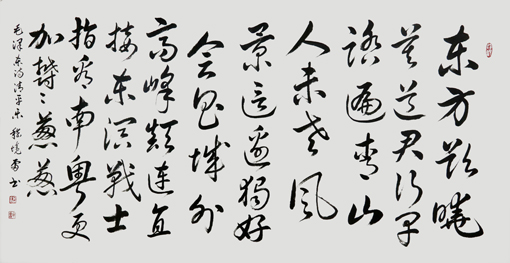 东方欲晓
莫道君行早
踏遍青山
人未老风
景这边独好
会昌城外
高峰颠连直
接东溟戰士
指看南粤更
加鬱々葱葱
毛泽东词清平乐 书